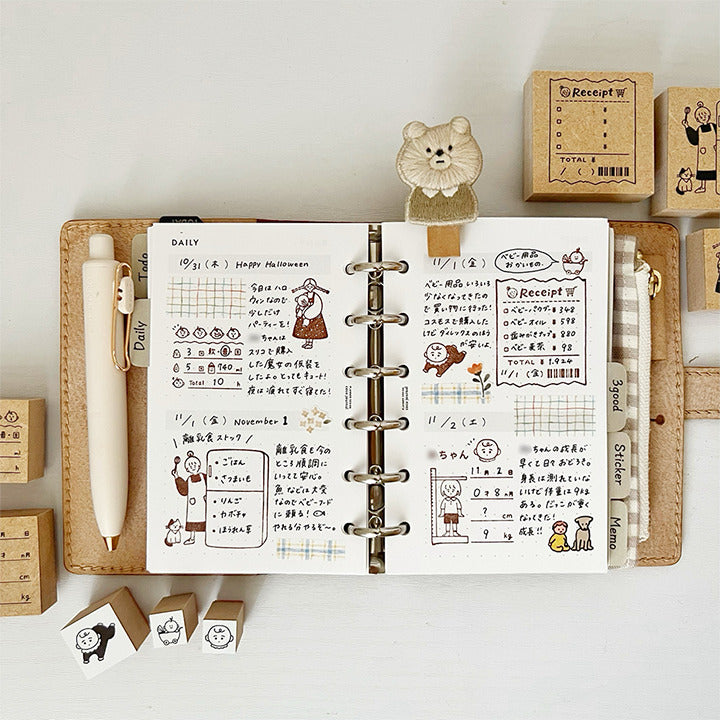 DAILY
10/31(木) Happy Halloween
今日はハロ
ウィンなので
少しだけ
パーティーを!
ちゃんは
スリコで購入
した魔女の仮装を
したよ。とってもキュート!
夜は疲れてすぐ寝た!
3 回
5 回 740 ml
Total 10 h
11/1(金) November 1
離乳食ストック
・ごはん
・さつまいも
・りんご
・カボチャ
・ほうれん草
離乳食も今の
ところ順調に
いってて安心。
魚などは大変
なのでベビーフード
に頼る!
やれる分やるぞ〜。
11/1(金)
ベビー用品
おかいもの
ベビー用品いろいろ
少なくなってきたの
で買い物に行った!
コスモスで購入した
けどダイレックスのほう
が安いよ。
Receipt
ベビーパウダー ¥348
ベビーオイル ¥598
歯みがきナップ ¥880
ベビー麦茶 ¥98
TOTAL ¥1,924
11/1(金)
11/2(土)
ちゃん
11月2日
0才8ヵ月
? cm
9 kg
ちゃんの成長が
早くて日々おどろき。
身長は測れていな
いけど体重は9kg
ある。だっこが重く
なってきた!
成長!!
Todo
Daily
3good
Sticker
Memo
Receipt
¥
¥
¥
TOTAL ¥
/ ( )
cm
kg